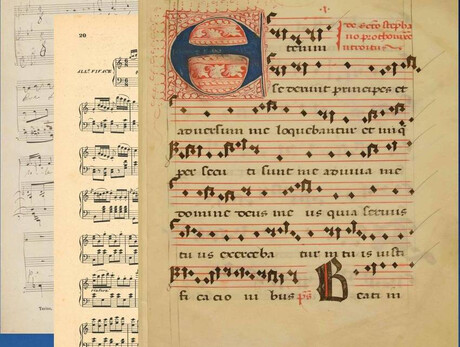 20
ALL.º VIVACE
E tenim
De sco stepha
no prothom
introitus
se derunt principes et
adversum me loquebantur et iniq
per secu ti sunt me adiuva me
domine deus me us quia servus
tu us exerceba tur in tu is iusti
fi cacio ni bus ps Beati in